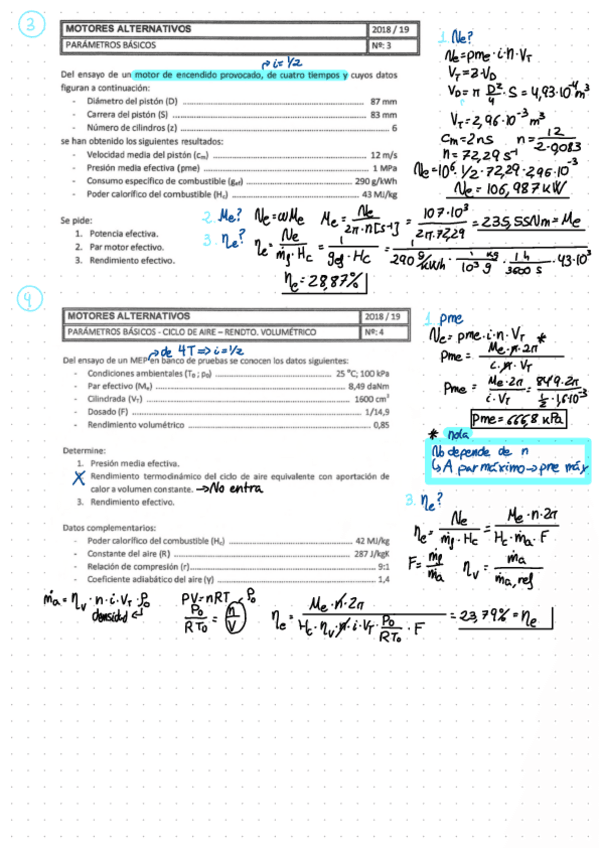 3
MOTORES ALTERNATIVOS 2018 / 19
PARÁMETROS BÁSICOS Nº: 3
→ i = 1/2
Del ensayo de un motor de encendido provocado, de cuatro tiempos y cuyos datos
figuran a continuación:
- Diámetro del pistón (D) 87 mm
- Carrera del pistón (S) 83 mm
- Número de cilindros (z) 6
se han obtenido los siguientes resultados:
- Velocidad media del pistón (cm) 12 m/s
- Presión media efectiva (pme) 1 MPa
- Consumo específico de combustible (gef) 290 g/kWh
- Poder calorífico del combustible (Hc) 43 MJ/kg
Se pide:
1. Potencia efectiva.
2. Par motor efectivo.
3. Rendimiento efectivo.
1. Ne?
Ne = pme · i · n · VT
VT = z · VD
VD = π D²/4 · S = 4,93·10⁻⁴ m³
VT = 2,96·10⁻³ m³
cm = 2ns n = 12/2·0,083
n = 72,29 s⁻¹
Ne = 10⁶ · 1/2 · 72,29 · 2,96·10⁻³
Ne = 106,987 kW
2. Me? Ne = ωMe Me = Ne/2π·n[s-1] = 107·10³/2π·72,29 = 235,55Nm = Me
3. ηe? ηe = Ne/ṁf·Hc = 1/gef·Hc = 1/290 g/kWh · 1 kg/10³ g · 1h/3600 s · 43·10³
ηe = 28,87%
4
MOTORES ALTERNATIVOS 2018 / 19
PARÁMETROS BÁSICOS - CICLO DE AIRE – RENDTO. VOLUMÉTRICO Nº: 4
→ de 4T => i = 1/2
Del ensayo de un MEP en banco de pruebas se conocen los datos siguientes:
- Condiciones ambientales (T0 ; p0) 25 °C; 100 kPa
- Par efectivo (Me) 8,49 daNm
- Cilindrada (VT) 1600 cm³
- Dosado (F) 1/14,9
- Rendimiento volumétrico 0,85
Determine:
1. Presión media efectiva.
X Rendimiento termodinámico del ciclo de aire equivalente con aportación de
calor a volumen constante. → No entra
3. Rendimiento efectivo.
Datos complementarios:
- Poder calorífico del combustible (Hc) 42 MJ/kg
- Constante del aire (R) 287 J/kgK
- Relación de compresión (r) 9:1
- Coeficiente adiabático del aire (γ) 1,4
1. pme
Ne = pme · i · n · VT *
pme = Me · n · 2π/i · n · VT
pme = Me · 2π/i · VT = 84,9 · 2π/½ · 1,6·10⁻³
pme = 666,8 kPa
* nota
No depende de n
↳ A par máximo → pme máx
3. ηe?
ηe = Ne/ṁf · Hc = Me · n · 2π/Hc · ṁa · F
F = ṁf/ṁa ηv = ṁa/ṁa,ref
ṁa = ηv · n · i · VT · ρ0 PV = nRT ρ0
densidad ↵ P0/RT0 = n/V
ηe = Me · n · 2π/Hc · ηv · n · i · VT · P0/RT0 · F = 23,79% = ηe